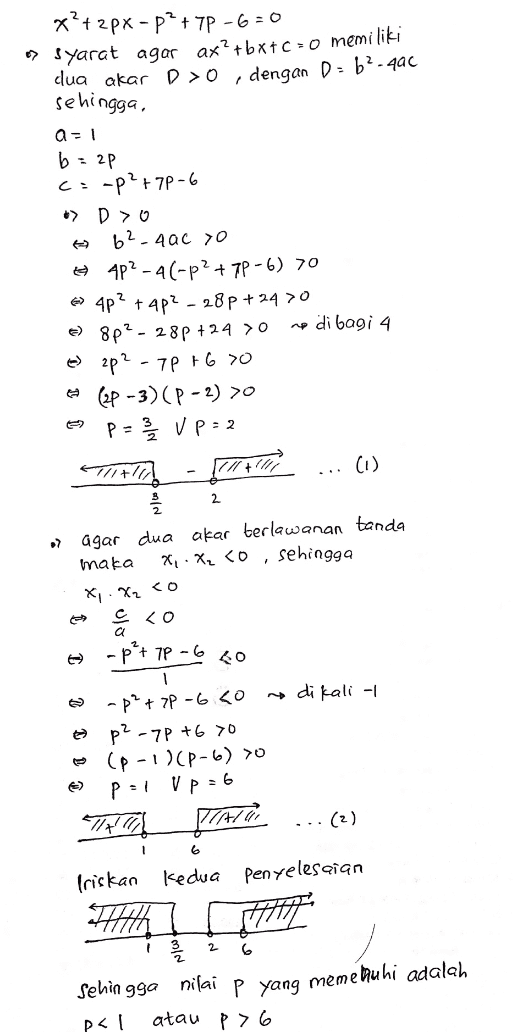 x² + 2px - p² + 7p - 6 = 0
•> syarat agar ax² + bx + c = 0 memiliki
dua akar D > 0 , dengan D = b² - 4ac
sehingga,
a = 1
b = 2p
c = -p² + 7p - 6
•> D > 0
⇔ b² - 4ac > 0
⇔ 4p² - 4(-p² + 7p - 6) > 0
⇔ 4p² + 4p² - 28p + 24 > 0
⇔ 8p² - 28p + 24 > 0 ⇝ dibagi 4
⇔ 2p² - 7p + 6 > 0
⇔ (2p - 3)(p - 2) > 0
⇔ p = 3/2 V p = 2
+ - + ... (1)
3/2 2
•> agar dua akar berlawanan tanda
maka x₁ . x₂ < 0 , sehingga
x₁ . x₂ < 0
⇔ c/a < 0
⇔ (-p² + 7p - 6)/1 < 0
⇔ -p² + 7p - 6 < 0 ⇝ dikali -1
⇔ p² - 7p + 6 > 0
⇔ (p - 1)(p - 6) > 0
⇔ p = 1 V p = 6
+ + ... (2)
1 6
Iriskan kedua penyelesaian
1 3/2 2 6
Sehingga nilai p yang memenuhi adalah
p < 1 atau p > 6